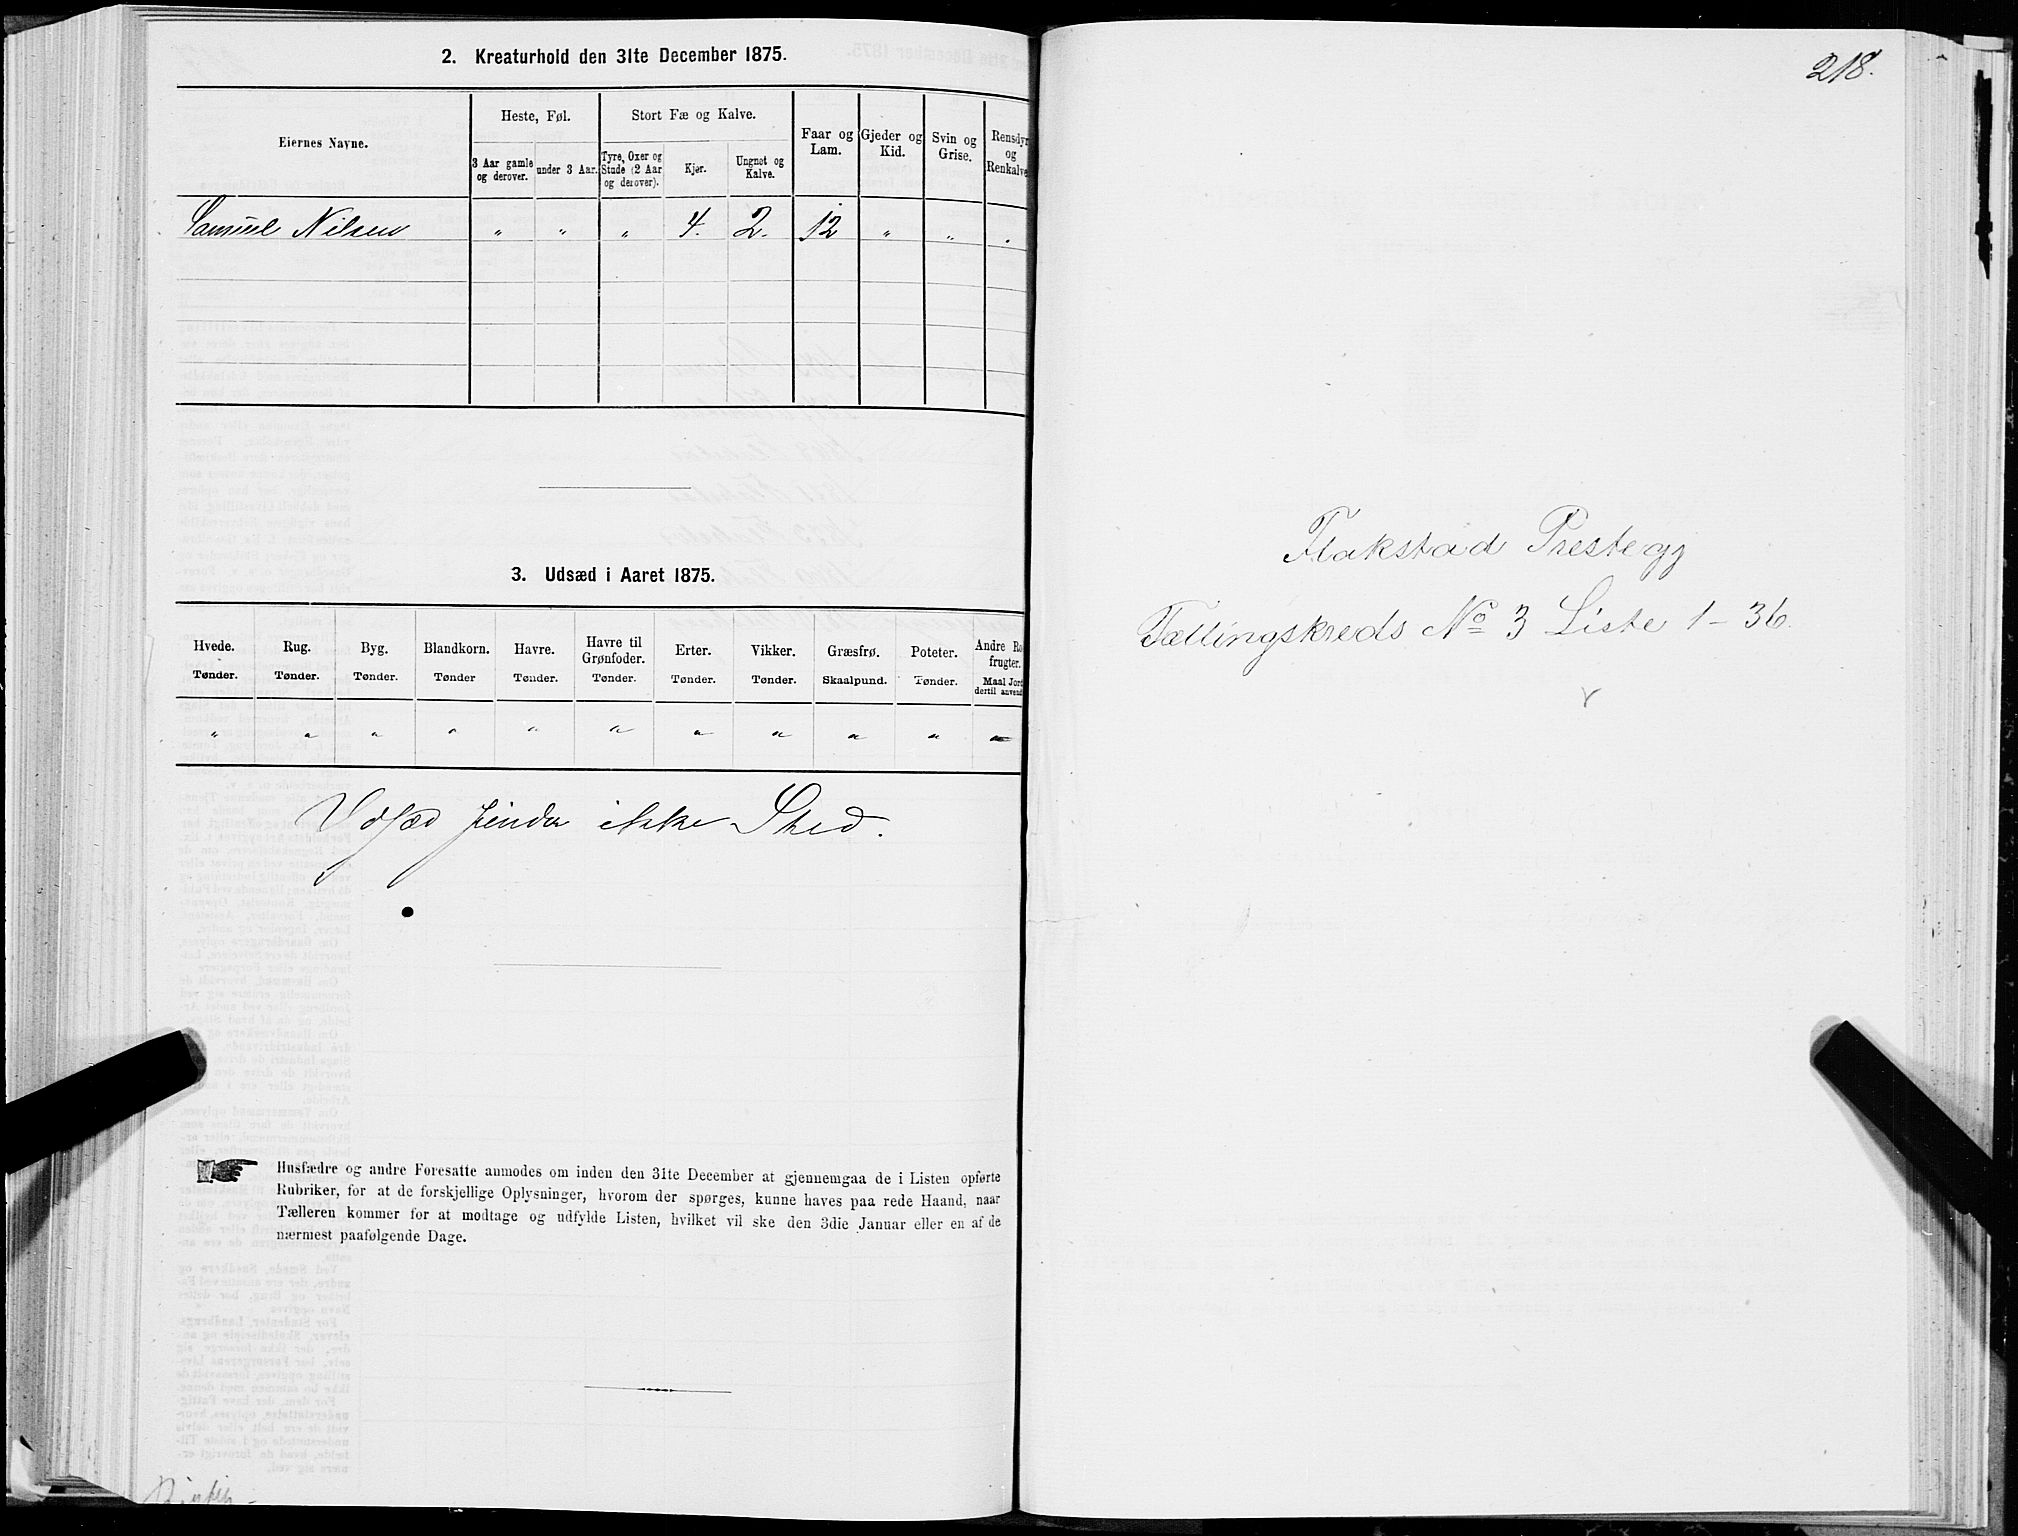 2. Kreaturhold den 31te December 1875.
Eiernes Navne.
Heste, Føl.
Stort Fæ og Kalve.
Faar og Lam.
Gjeder og Kid.
Svin og Grise.
Rensdyr og Renkalve
3 Aar gamle og derover.
under 3 Aar.
Tyre, Oxer og Stude (2 Aar og derover).
Kjør.
Ungnøt og Kalve.
Samuel Nilsen " " " 4. 2. 12 " " "
3. Udsæd i Aaret 1875.
Hvede. Rug. Byg. Blandkorn. Havre. Havre til Grønfoder. Erter. Vikker. Græsfrø. Poteter. Andre Ro frugter.
Tønder. Tønder. Tønder. Tønder Tønder. Tønder. Tønder. Tønder. Skaalpund. Tønder. Maal Jord dertil anvend
" " " " " " " " " " "
Udsæd finder ikke Sted.
Husfædre og andre Foresatte anmodes om inden den 31te December at gjennemgaa de i Listen opførte
Rubriker, for at de forskjellige Oplysninger, hvorom der spørges, kunne haves paa rede Haand, naar
Tælleren kommer for at modtage og udfylde Listen, hvilket vil ske den 3die Januar eller en af de
nærmest paafølgende Dage.
218.
Flakstad Prestegj
Tællingskreds No 3 Liste 1-36.